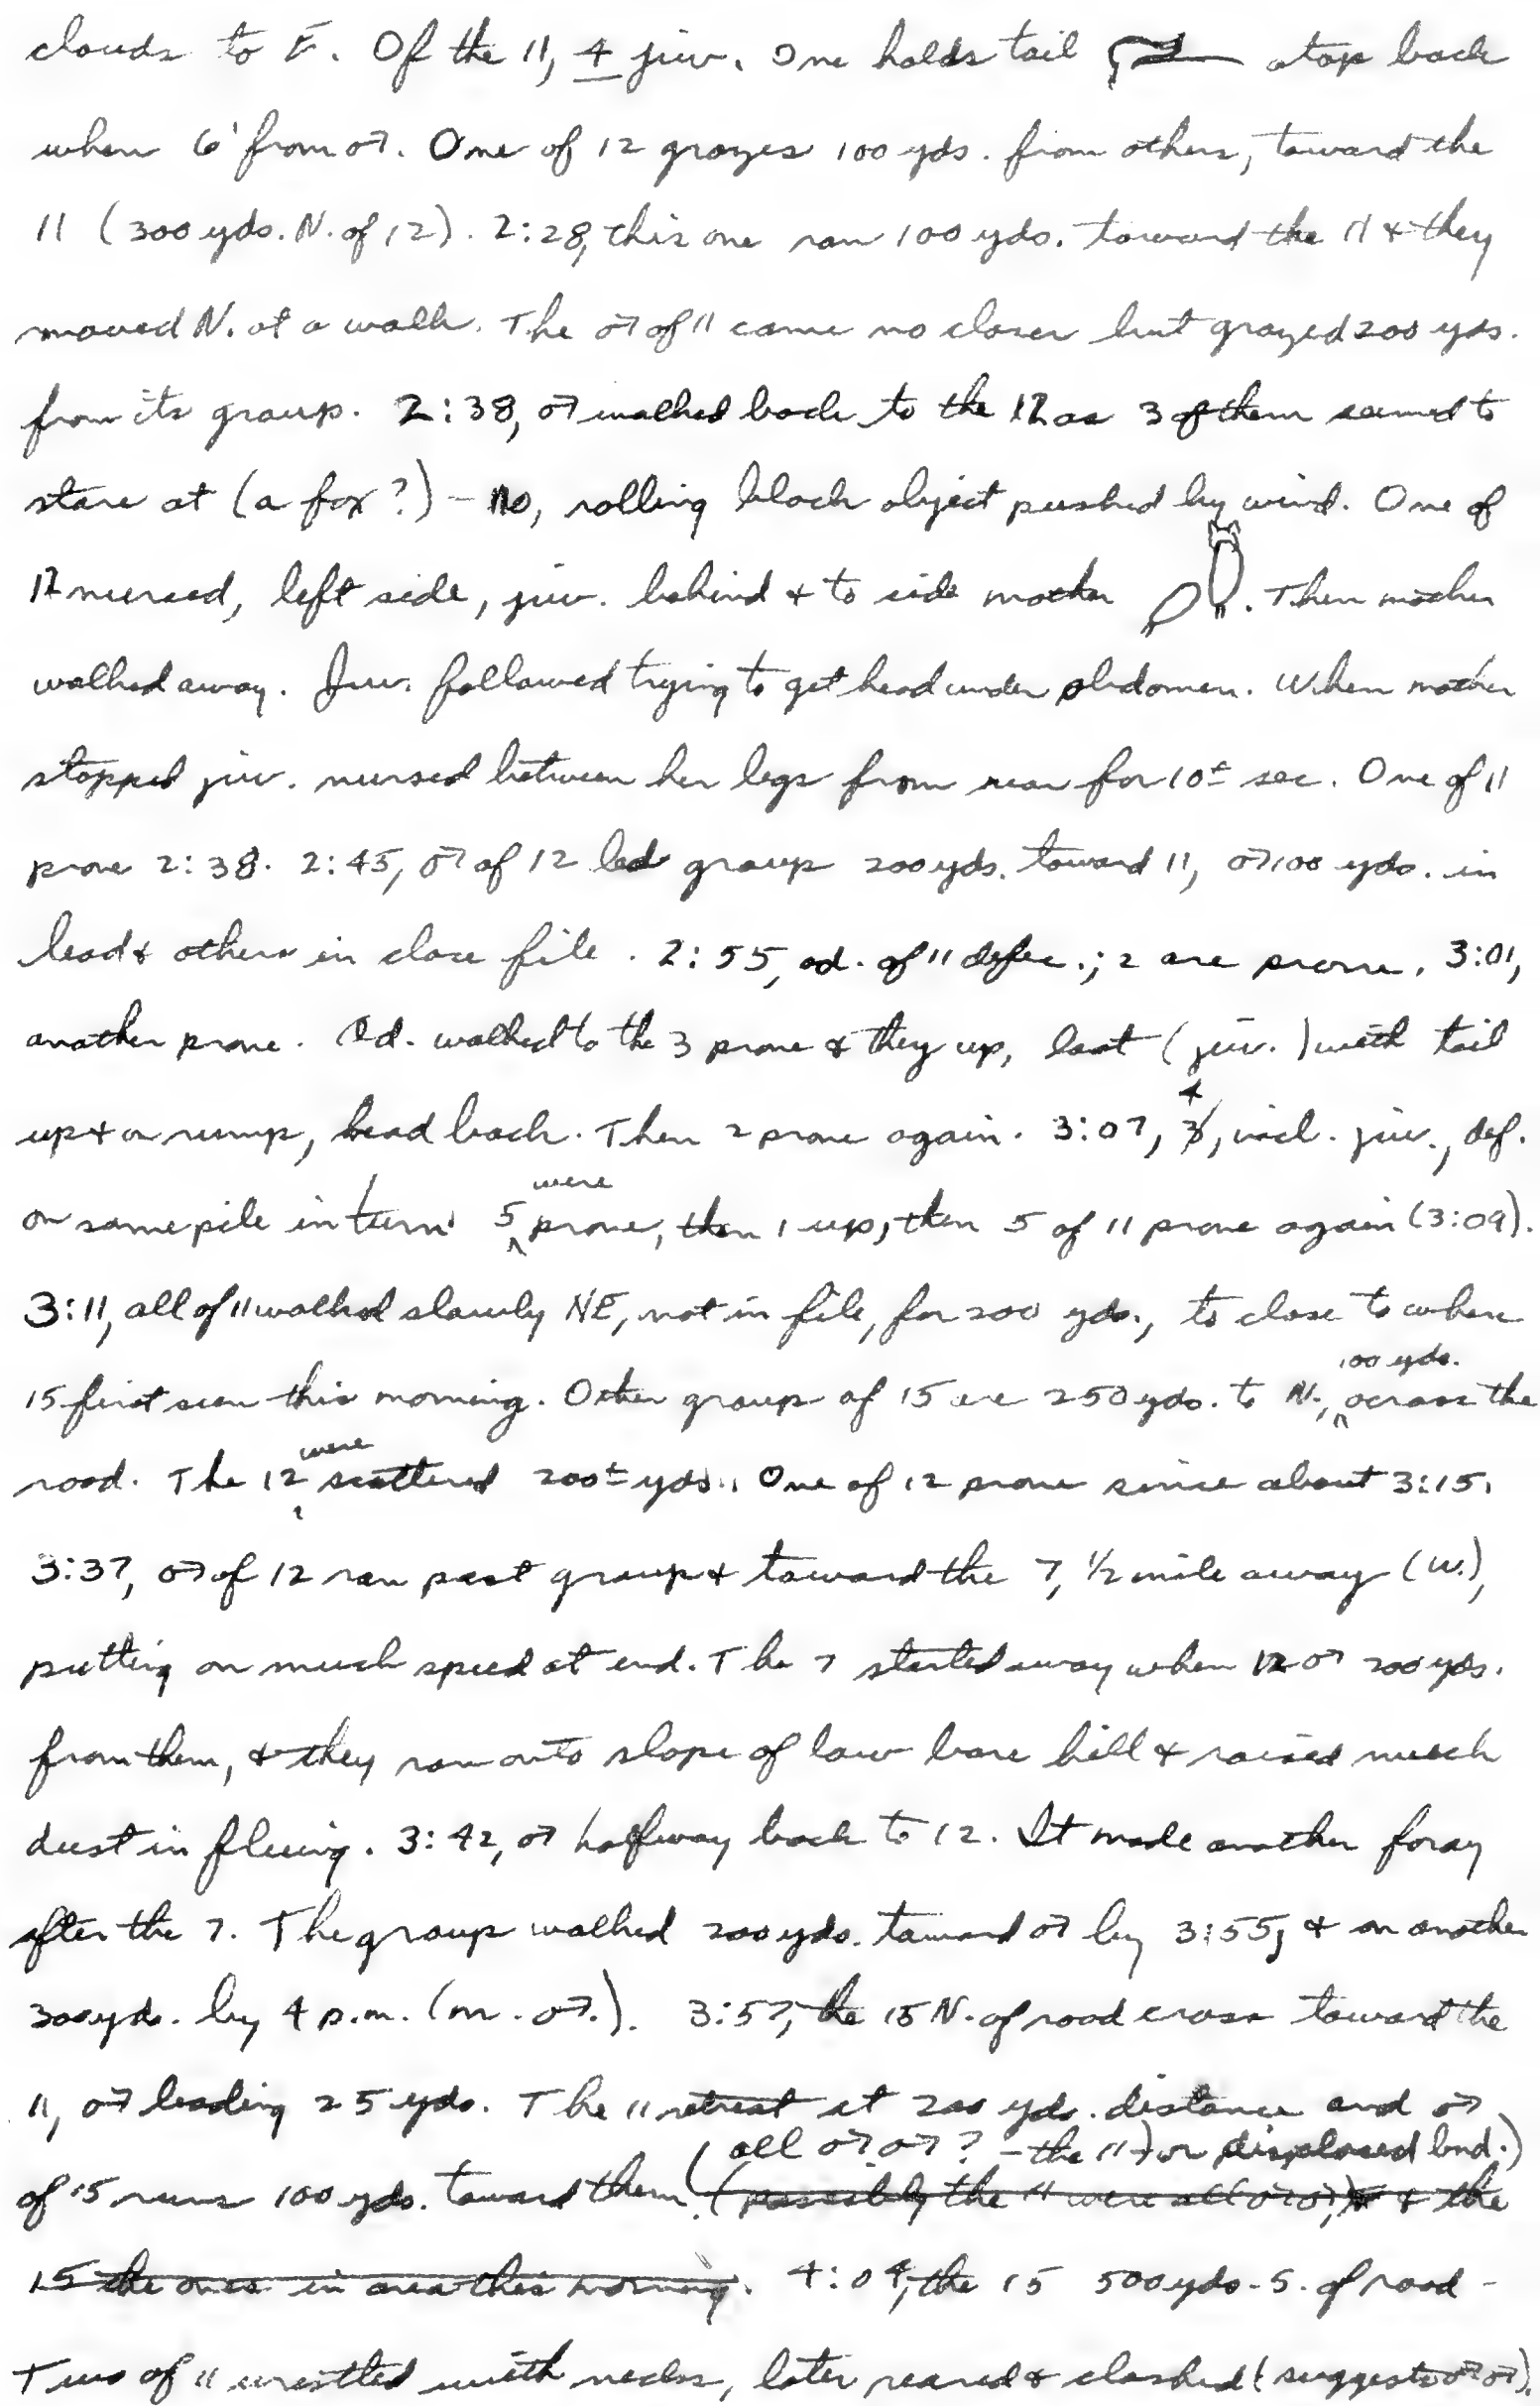 clouds to E. Of the 11, 4 juv. One holds tail atop back
when 6' from ♂. One of 12 grazes 100 yds. from others, toward the
11 (300 yds. N. of 12). 2:28, this one ran 100 yds. toward the 11 & they
moved N. at a walk. The ♂ of 11 came no closer but grazed 200 yds.
from its group. 2:38, ♂ walked back to the 12 as 3 of them seemed to
stare at (a fox?) - no, rolling black object pushed by wind. One of
12 nursed, left side, juv. behind & to side mother. Then mother
walked away. Juv. followed trying to get head under abdomen. When mother
stopped juv. nursed between her legs from rear for 10± sec. One of 11
prone 2:38. 2:45, ♂ of 12 led group 200 yds. toward 11, ♂ 100 yds. in
lead & others in close file. 2:55, ad. of 11 defec.; 2 are prone. 3:01,
another prone. Ad. walked to the 3 prone & they up, last (juv.) with tail
up & on rump, head back. Then 2 prone again. 3:07, 4, incl. juv., def.
on same pile in turn. 5 were prone, then 1 up, then 5 of 11 prone again (3:09).
3:11, all of 11 walked slowly NE, not in file, for 200 yds., to close to where
15 first seen this morning. Other group of 15 are 250 yds. to N., 100 yds. across the
road. The 12 were scattered 200± yds. One of 12 prone since about 3:15.
3:37, ♂ of 12 ran past group & toward the 7, 1/2 mile away (W.),
putting on much speed at end. The 7 started away when 12 ♂ 200 yds.
from them, & they ran onto slope of low bare hill & raised much
dust in fleeing. 3:42, ♂ halfway back to 12. It made another foray
after the 7. The group walked 200 yds. toward ♂ by 3:55, & on another
300 yds. by 4 p.m. (m. ♂.). 3:57, the 15 N. of road cross toward the
11, ♂ leading 25 yds. The 11 retreat at 200 yds. distance and ♂
(all ♂♂? - the 11) or displaced bnd.)
of 15 runs 100 yds. toward them. (possibly the 11 were all ♂♂,) & the
15 the ones in area this morning. 4:04, the 15 500 yds. S. of road -
Two of 11 wrestled with necks, later reared & clashed (suggests ♂♂).